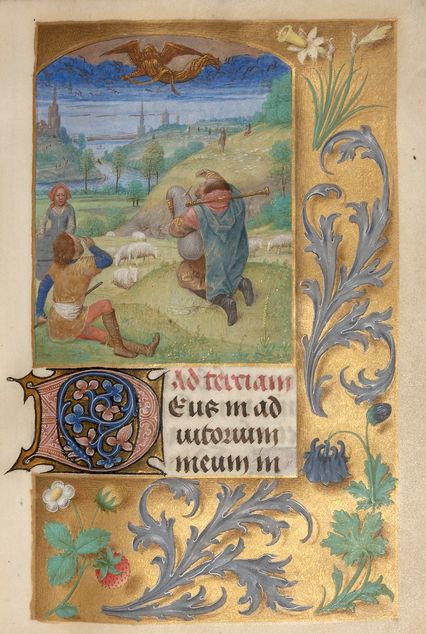 Ad terciam
Deus in ad
iutorium
meum in